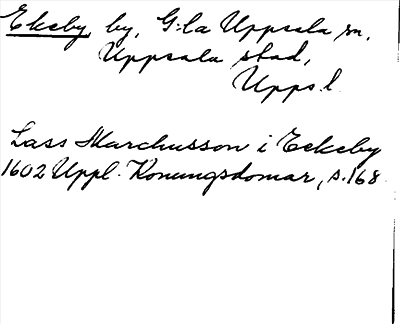 Ekeby, by, G:la Uppsala sn,
Uppsala stad,
Upps.l.
Lass Marchusson i Eekeby
1602 Uppl. Konungsdomar, s. 168.